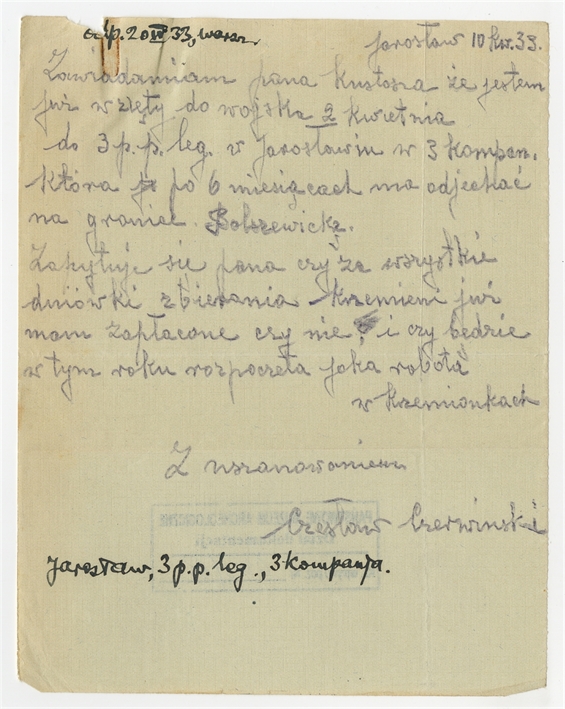 odp. 20 IV 33, Warsz.
Jarosław 10 kw. 33.
Zawiadamiam pana Kustosza że jestem
już wzięty do wojska 2 kwietnia
do 3 p.p. leg. w Jarosławiu w 3 kompan.
która po 6 miesiącach ma odjechać
na granice Bolszewicką.
Zapytuje się pana czy za wszystkie
dniówki zbierania krzemieni już
mam zapłacone czy nie, i czy będzie
w tym roku rozpoczeta jaka robota
w Krzemionkach
Z uszanowaniem
Czesław Czerwinski
Jarosław, 3 p.p. leg., 3 kompanja.